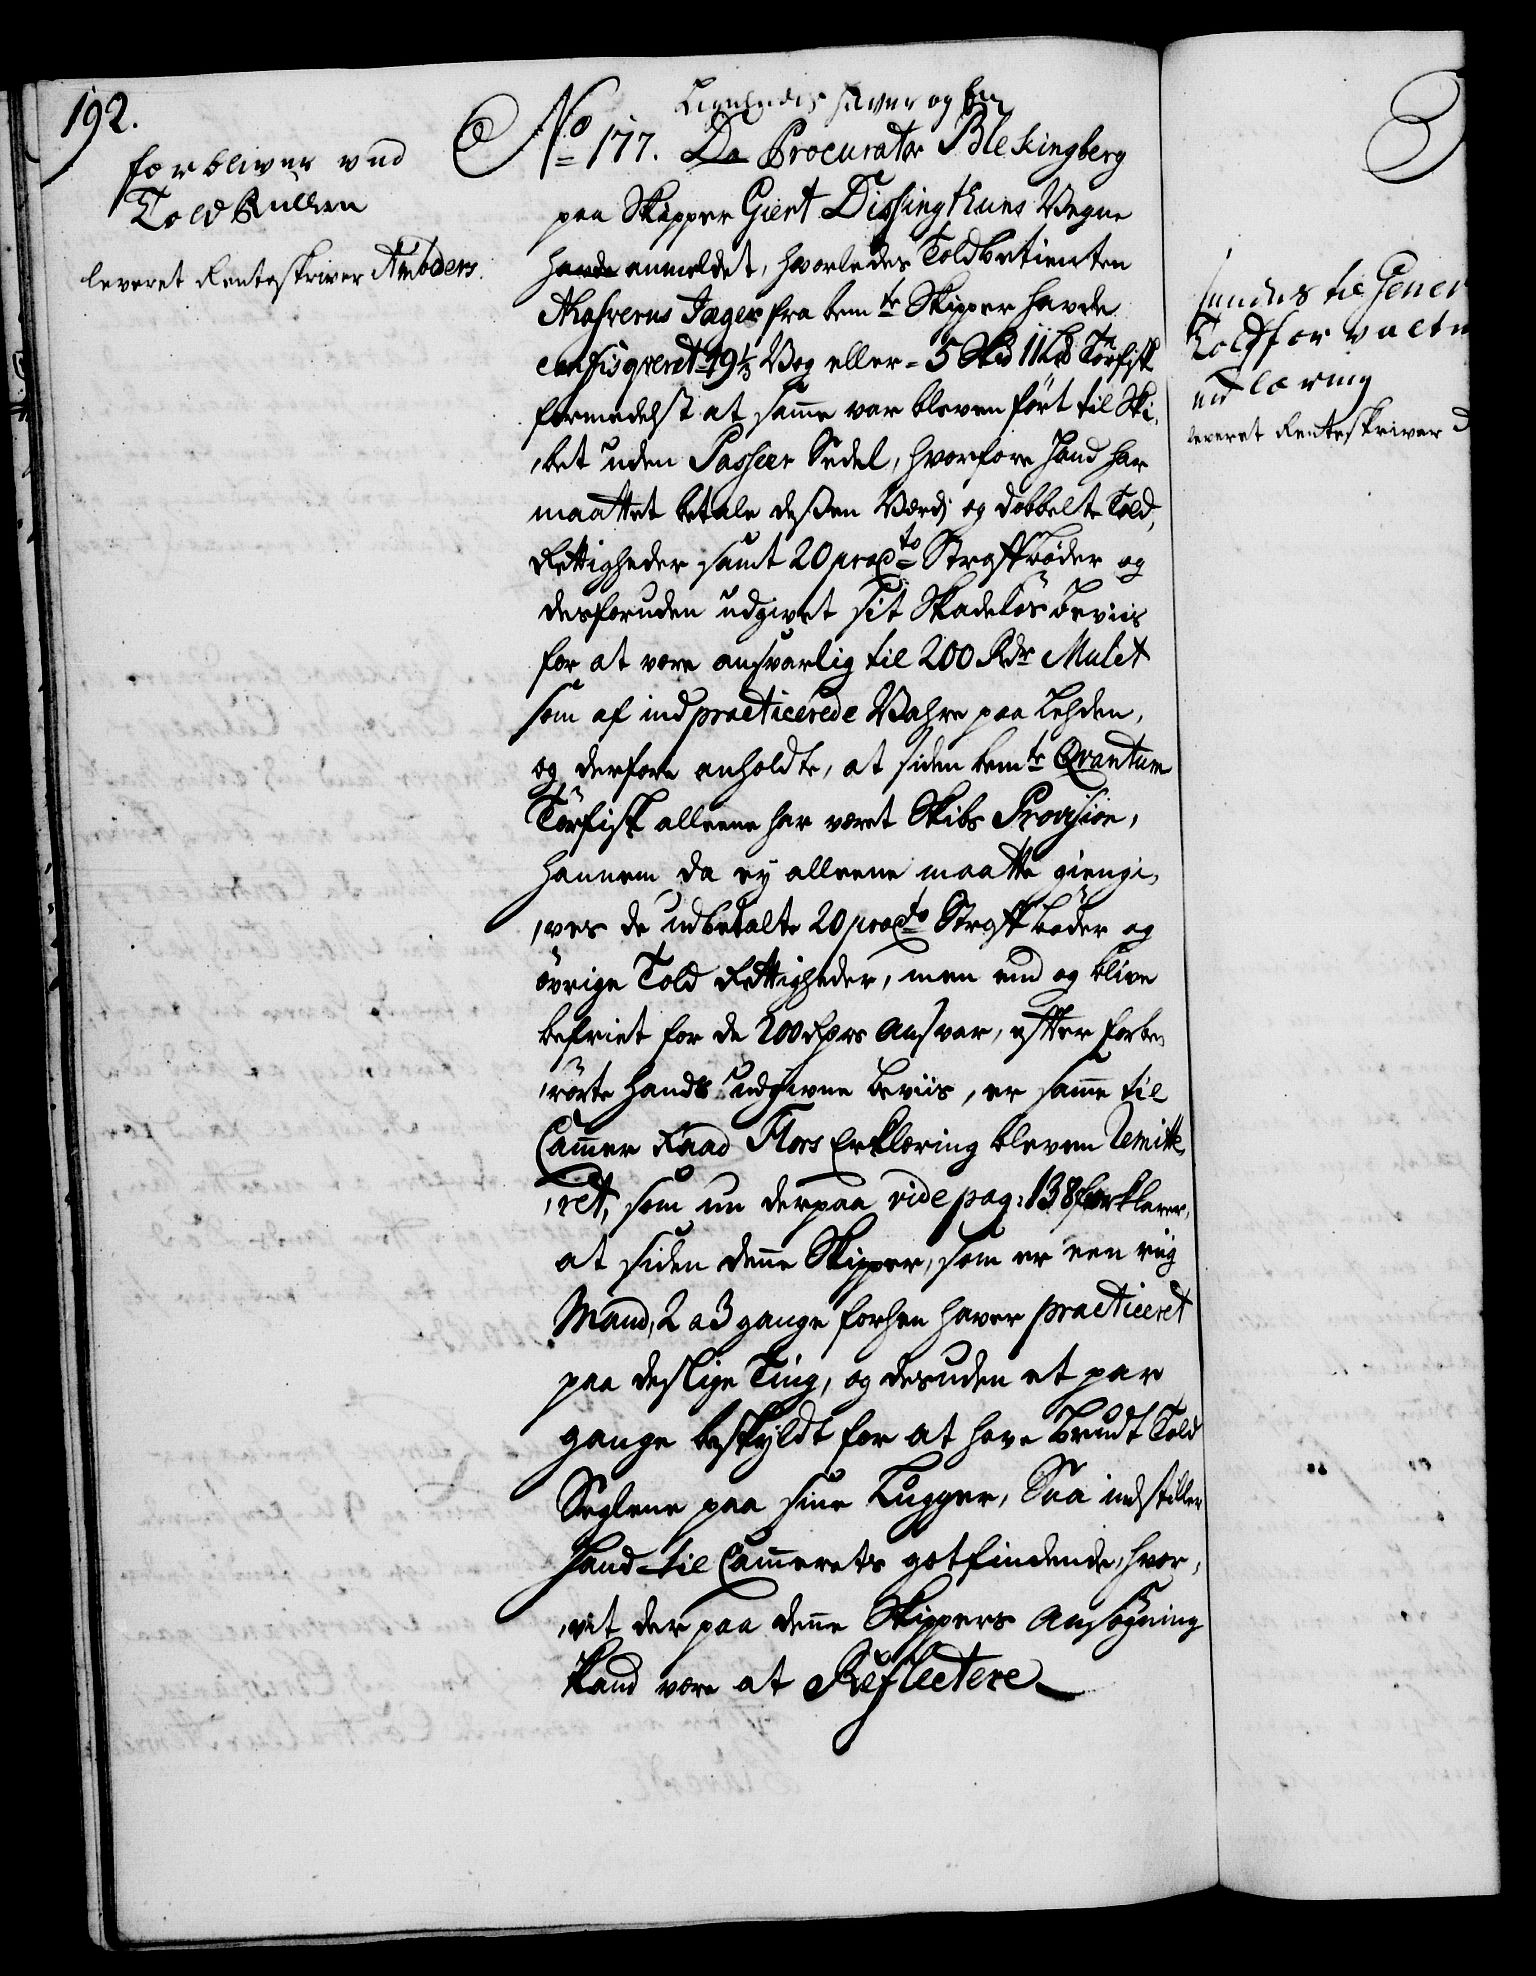 192.
forbliver ved
Told Rullen
leveret Renteskriver Anbders.
Ligeledes haver og
No 177. Da Procurator Blekingberg
paa Skipper Giert Dissingthuns Vegne
hafde anmeldet, hvorledes Toldbetienten
Ahasverus Jæger fra bemte Skipper havde
confisqveret 49 1/3 Vog eller 5 Skd 11 Lb Tørfisk
formedelst at samme var bleven ført til Ski,
,bet uden Passeer Sedel, hvorfore hand har
maattet betale dessen Værdj og dobbelte Told,
Rettigheder samt 20 procto Straffbøder og
desforuden udgivet sit Skadesløs Beviis
for at være ansvarlig til 200 Rdr Mulct
som af indpracticerede Vahre paa Lehden,
og derfore anholdte, at siden bemte Qvantum
Tørfisk alleene har været Skibs Provision,
hannem da ey alleene maatte giengi,
,ves de udbetalte 20 procto Straff bøder og
øvrige Told Rettigheder, men end og blive
befriet for de 200 Rdrs Ansvar, efter forbe,
,rørte hands udgivne Beviis, er samme til
Cammer Raad Flors Erklæring bleven Remitte,
,ret, som nu derpaa vide pag: 138 forklarer,
at siden denne Skipper, som er een riig
Mand, 2 a 3 gange forhen haver practiceret
paa deslige Ting, og desuden et par
gange beskyldt for at have brudt Told
Seglene paa sine Lugger, Saa indstiller
Hand til Cammerets gotfindende, hvor,
,vit der paa denne Skippers Ansøgning
kand være at Reflectere
sendes til Gener
Toldforvaltn
erklæring
leveret Renteskriver